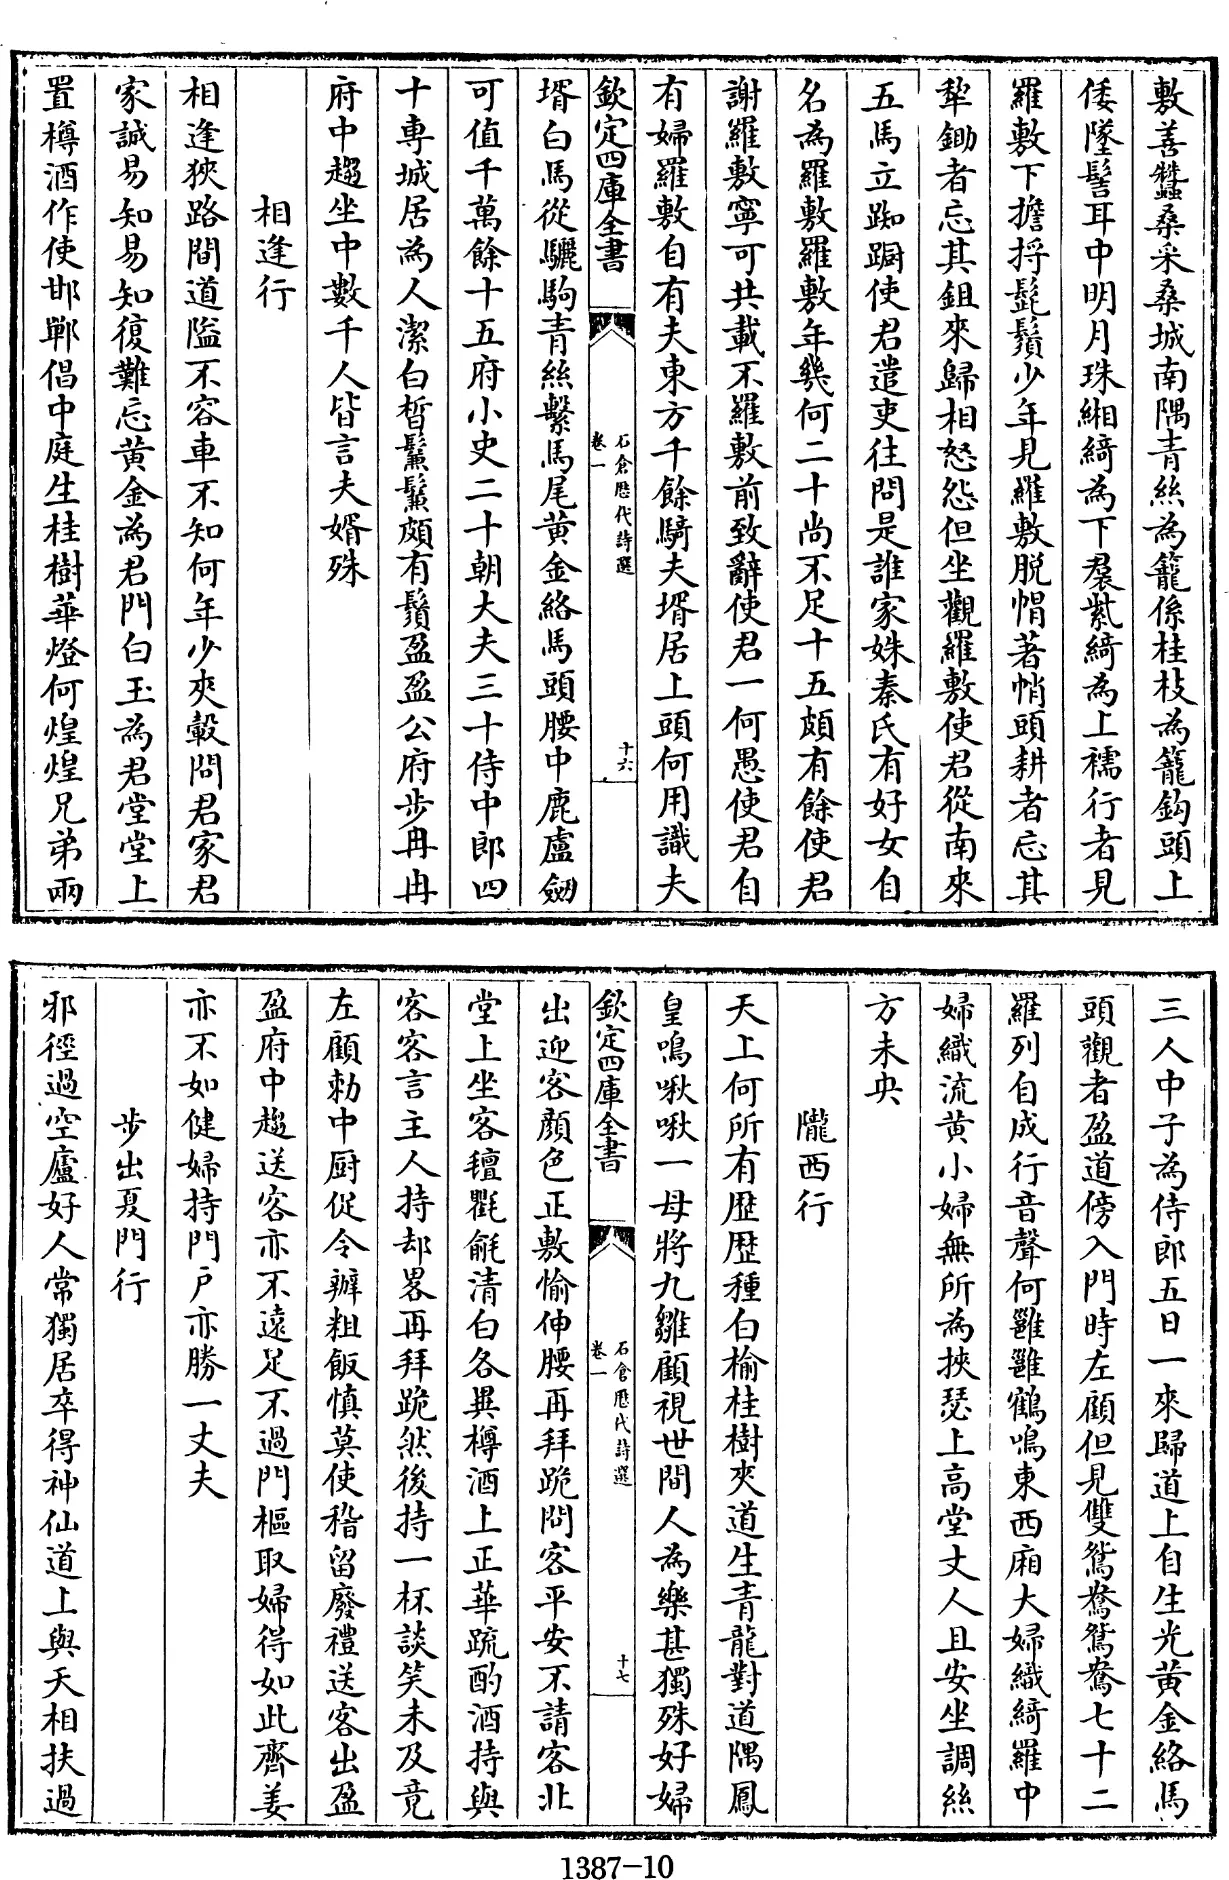 敷善蠶桑采桑城南隅青絲為籠係桂枝為籠鈎頭上
倭墜髻耳中明月珠緗綺為下裠紫綺為上襦行者見
羅敷下擔捋髭鬚少年見羅敷脱帽著帩頭耕者忘其
犂鋤者忘其鉏來歸相怒怨但坐觀羅敷使君從南來
五馬立踟蹰使君遣吏往問是誰家姝秦氏有好女自
名為羅敷羅敷年幾何二十尚不足十五頗有餘使君
謝羅敷寧可共載不羅敷前致辭使君一何愚使君自
有婦羅敷自有夫東方千餘騎夫壻居上頭何用識夫
欽定四庫全書
石倉歷代詩選
卷一
十六
壻白馬從驪駒青絲繫馬尾黄金絡馬頭腰中鹿盧劒
可值千萬餘十五府小史二十朝大夫三十侍中郎四
十専城居為人潔白晳鬑鬑頗有鬚盈盈公府步冉冉
府中趨坐中數千人皆言夫婿殊
相逢行
相逢狹路間道隘不容車不知何年少夾轂問君家君
家誠易知易知復難忘黄金為君門白玉為君堂堂上
置樽酒作使邯鄲倡中庭生桂樹華燈何煌煌兄弟兩
三人中子為侍郎五日一來歸道上自生光黄金絡馬
頭觀者盈道傍入門時左顧但見雙鴛鴦鴛鴦七十二
羅列自成行音聲何雝雝鶴鳴東西廂大婦織綺羅中
婦織流黄小婦無所為挾瑟上高堂丈人且安坐調絲
方未央
隴西行
天上何所有歴歴種白榆桂樹夾道生青龍對道隅鳳
皇鳴啾啾一母將九雛顧視世間人為樂甚獨殊好婦
欽定四庫全書
石倉歷代詩選
卷一
十七
出迎客顔色正敷愉伸腰再拜跪問客平安不請客北
堂上坐客氊氍毹清白各異樽酒上正華疏酌酒持與
客客言主人持却畧再拜跪然後持一杯談笑未及竟
左顧勑中厨促令辦粗飯慎莫使稽留廢禮送客出盈
盈府中趨送客亦不遠足不過門樞取婦得如此齊姜
亦不如健婦持門户亦勝一丈夫
步出夏門行
邪徑過空廬好人常獨居卒得神仙道上與天相扶過
1387-10